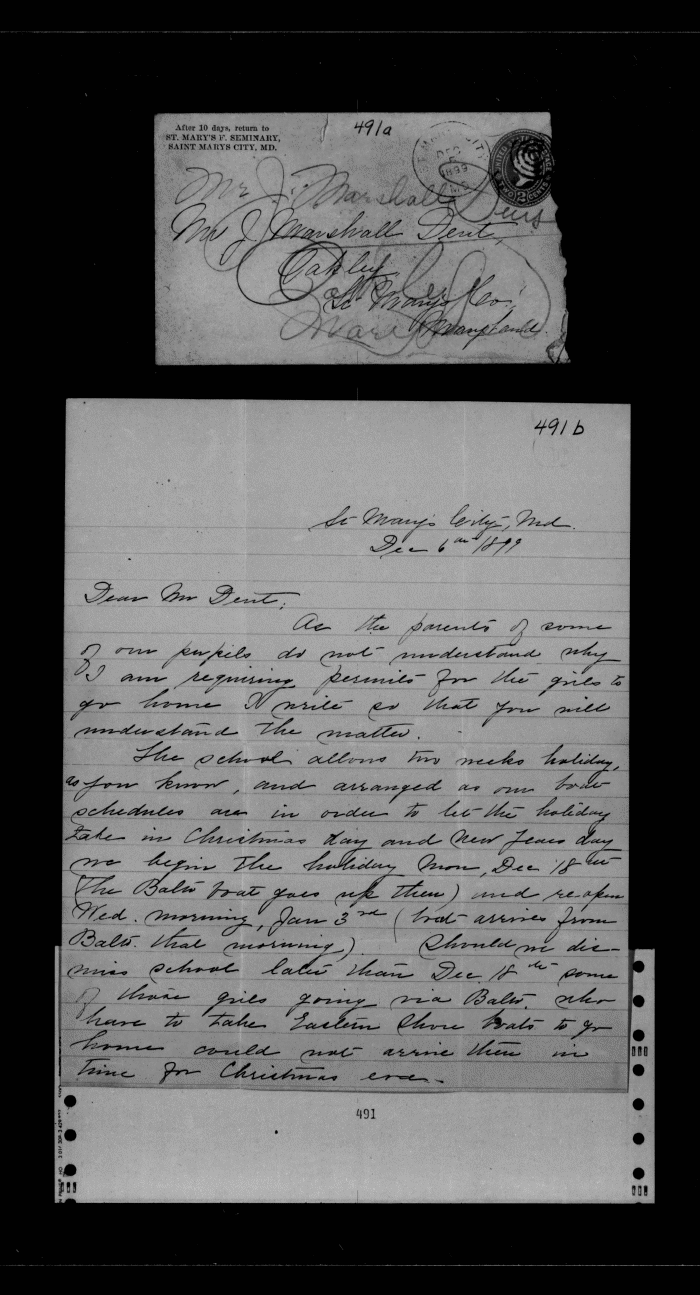 After 10 days, return to
ST. MARY'S F. SEMINARY,
SAINT MARYS CITY, MD.
491a
DEC
1899
MD
2
Mr J. Marshall Dent
Mr J. Marshall Dent,
Oakley
St Mary's Co.,
Maryland.
491b
St Mary's City, Md.
Dec 6th 1899
Dear Mr Dent:
As the parents of some
of our pupils do not understand why
I am requiring permits for the girls to
go home I write so that you will
understand the matter.
The school allows two weeks holiday,
as you know, and arranged as our boat
schedules are in order to let the holiday
take in Christmas day and New Years day
we begin the holiday Mon, Dec 18th
(the Balto boat goes up then) and reopen
Wed. morning, Jan 3rd (boat arrives from
Balto. that morning) Should we dis-
miss school later than Dec. 18th some
of those girls going via Balto. who
have to take Eastern Shore boats to go
home could not arrive there in
time for Christmas eve.
491